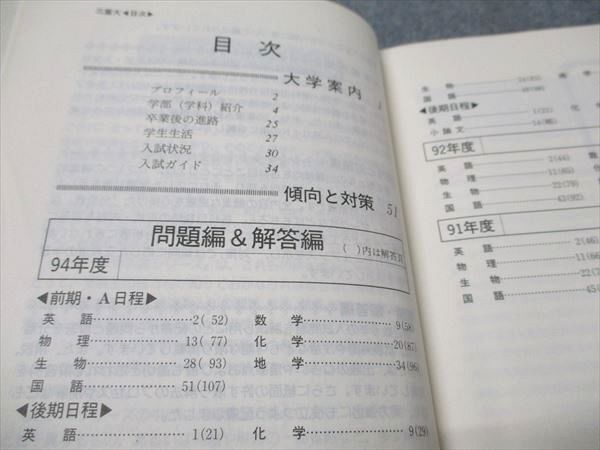 三重大◀目次▶
目次
大学案内 1
プロフィール 2
学部（学科）紹介 4
卒業後の進路 25
学生生活 27
入試状況 30
入試ガイド 34
傾向と対策 51
問題編＆解答編
（ ）内は解答頁
94年度
◀前期・A日程▶
英語……………2( 52) 数学……………9(58)
物理……………13( 77) 化学……………20(87)
生物……………28( 93) 地学……………34(96)
国語……………51(107)
◀後期日程▶
英語……………1(21) 化学……………9(29)
生物
国語
◀後期日程▶
英語……………1(21) 化
小論文
92年度
英語……………2(44)
物理……………11(65)
生物……………22(79)
国語……………43(92)
91年度
英語……………2(46)
物理……………11(66
生物……………22(7
国語……………45(